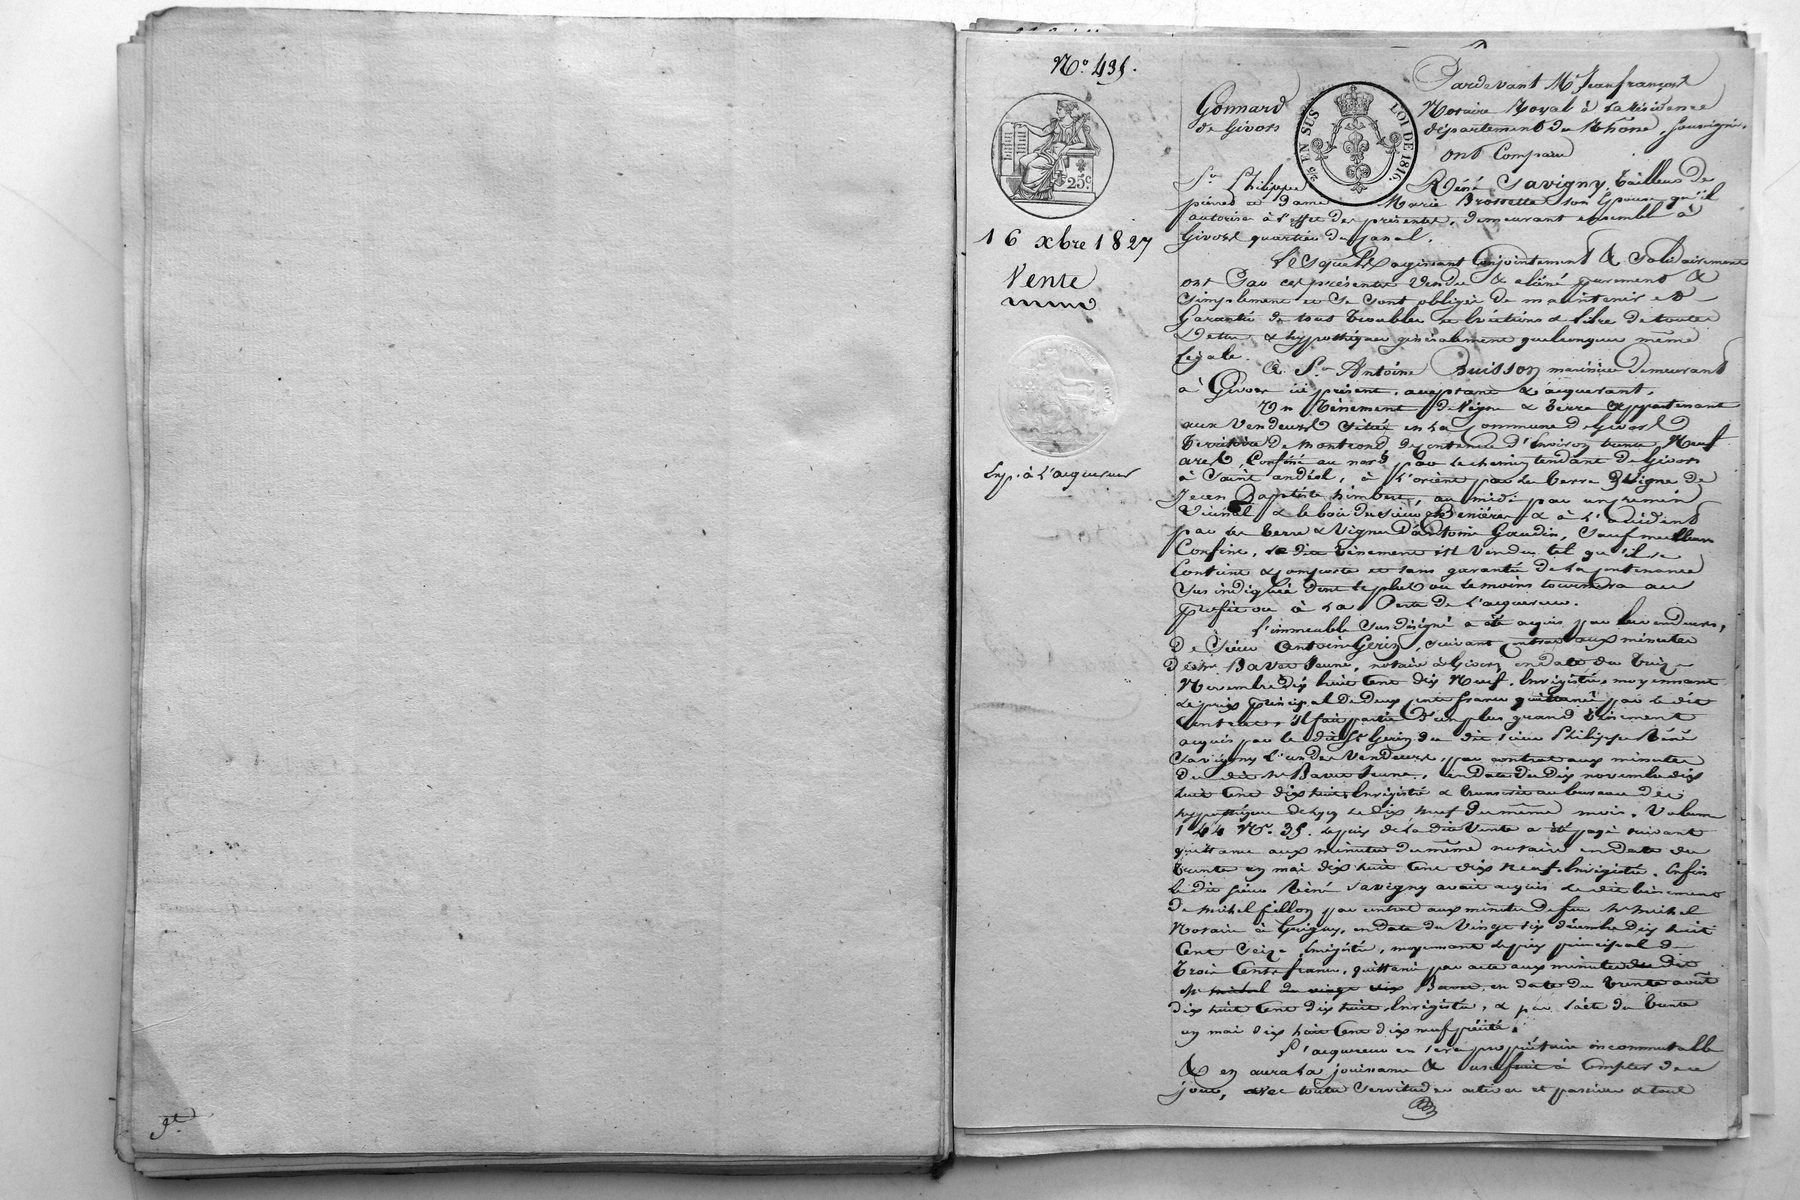 N.° 435.
25 c.
16 xbre 1827
Vente
Exp. à l'acquereur
25 EN SUS
LOI DE 1816.
Pardevant M.e Jean françois
Gonnard Notaire Royal à la Résidence
de Givors département du Rhône, soussigné,
ont Comparu
S.r Philippe Réné Savigny, tailleur de
pierres et dame Marie Brossette son Epouse qu'il
autorise à l'effet des présentes, demeurant ensemble à
Givors quartier du Canal.
Lesquels agissant Conjointement & Solidairement
ont Par ces présentes Vendu & aliéné purement &
Simplement et se sont obligés de maintenir et
Garantir de tous troubles et Evictions & libre de toutes
Dettes & hypothéques généralement quelconques même
Légale.
à S.r Antoine Buisson marinier demeurant
à Givors ici présent, acceptant & acquerant,
Un Ténement de Vigne & terre appartenant
aux Vendeurs situé en la Commune de Givors
territoire de Montrond, de contenue d'Environ trente Neuf
ares, Confiné au nord par le chemin tendant de Givors
à Saint andéol, à l'orient par la terre & vigne de
Jean Baptiste himbert, au midi par un chemin
Vicinal & le bois du sieur & à l'occident
par les terre & Vigne d'Antoine Goudin, Sauf meilleurs
Confins, le dit ténement est Vendu tel qu'il se
Contient & comporte et sans garantie de la contenance
Sus indiquée dont le plus ou le moins tournera au
profit ou à la Perte de l'acquereur.
L'immeuble Sus désigné a été acquis par les vendeurs,
De Sieur Antoine Gerin, suivant contrat aux minutes
de M.e Bavet Jeune, notaire à Givors, en date du treize
Novembre dix huit Cent dix Neuf, Enrégistré, moyennant
le prix principal de Deux cents francs quittancé par le dit
Contrat, il fait partie d'un plus grand ténement
acquis par le dit S.r Gerin du dit sieur Philippe Réné
Savigny l'un des Vendeurs, par contrat aux minutes
Du dit M.e Bavet Jeune, en date du dix novembre dix
huit Cent dix huit, Enrégistré & transcrit au bureau des
hypothéques de Lyon le dix neuf du même mois, Volume
144 N.° 35. le prix de la dite Vente a été payé suivant
quittance aux minutes du même notaire en date du
trente un mai dix huit Cent dix neuf, Enrégistré. Enfin
le dit sieur Réné Savigny avait acquis le dit ténement
de Michel fillon par contrat aux minutes de feu M.e Michel
Notaire à Grigny, en date du Vingt six décembre dix huit
Cent Seize Enrégistré, moyennant le prix principal de
trois Cents francs, quittancé par acte aux minutes du dit
M.e Michel du vingt six Bavet, en date du trente août
dix huit Cent dix huit, Enrégistré, & par l'acte du trente
un mai dix huit Cent dix neuf précité.
L'acquereur en sera propriétaire incommutable
& en aura la jouissance & usufruit à Compter de ce
jour, avec toutes Servitudes actives et passives & tout